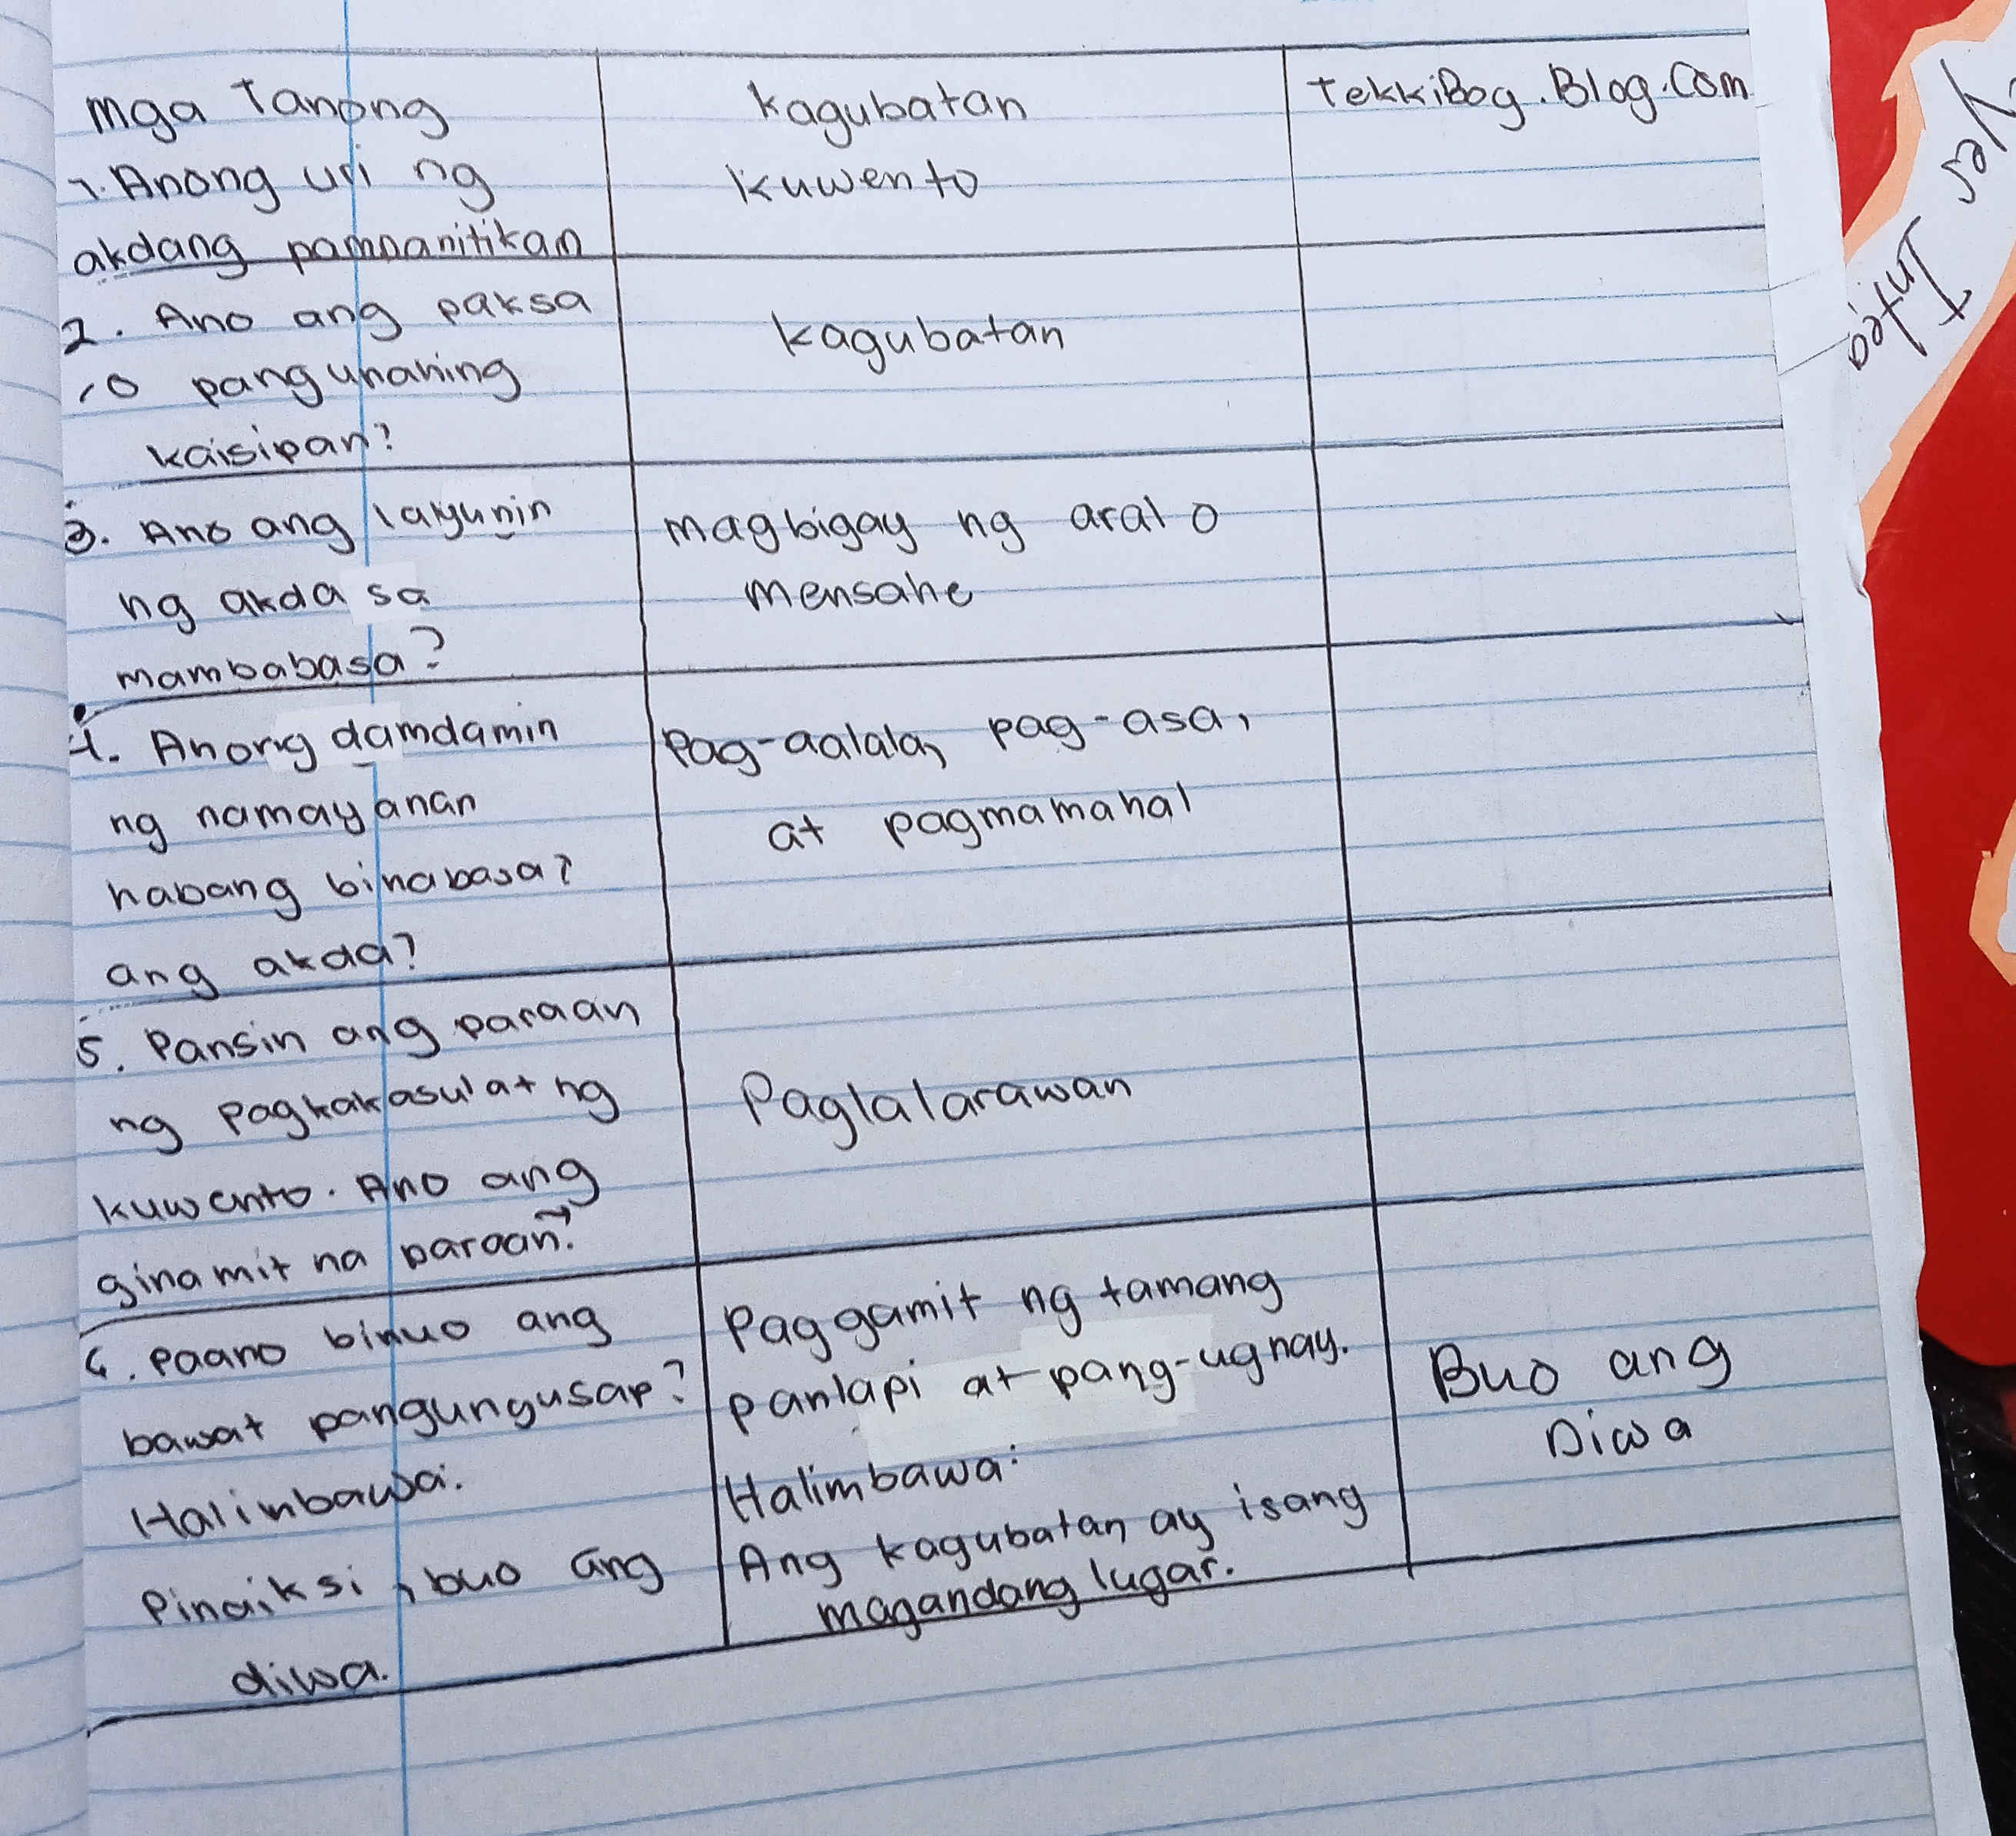 Mga Tanong
1. Anong uri ng
akdang pampanitikan
Kagubatan
Kuwento
TekkiBog.Blog.Com
2. Ano ang paksa
o pangunahing
kaisipan?
Kagubatan
3. Ano ang layunin
ng akda sa
mambabasa?
magbigay ng aral o
mensahe
4. Anong damdamin
ng namayanan
habang binabasa?
ang akda?
Pag-aalala, pag-asa,
at pagmamahal
5. Pansin ang paraan
ng Pagkakasulat ng
kuwento. Ano ang
ginamit na paraan?
Paglalarawan
6. Paano binuo ang
bawat pangungusap?
Halimbawa:
Pinaiksi, buo ang
diwa.
Paggamit ng tamang
panlapi at pang-ugnay.
Halimbawa:
Ang kagubatan ay isang
magandang lugar.
Buo ang
Diwa
yes